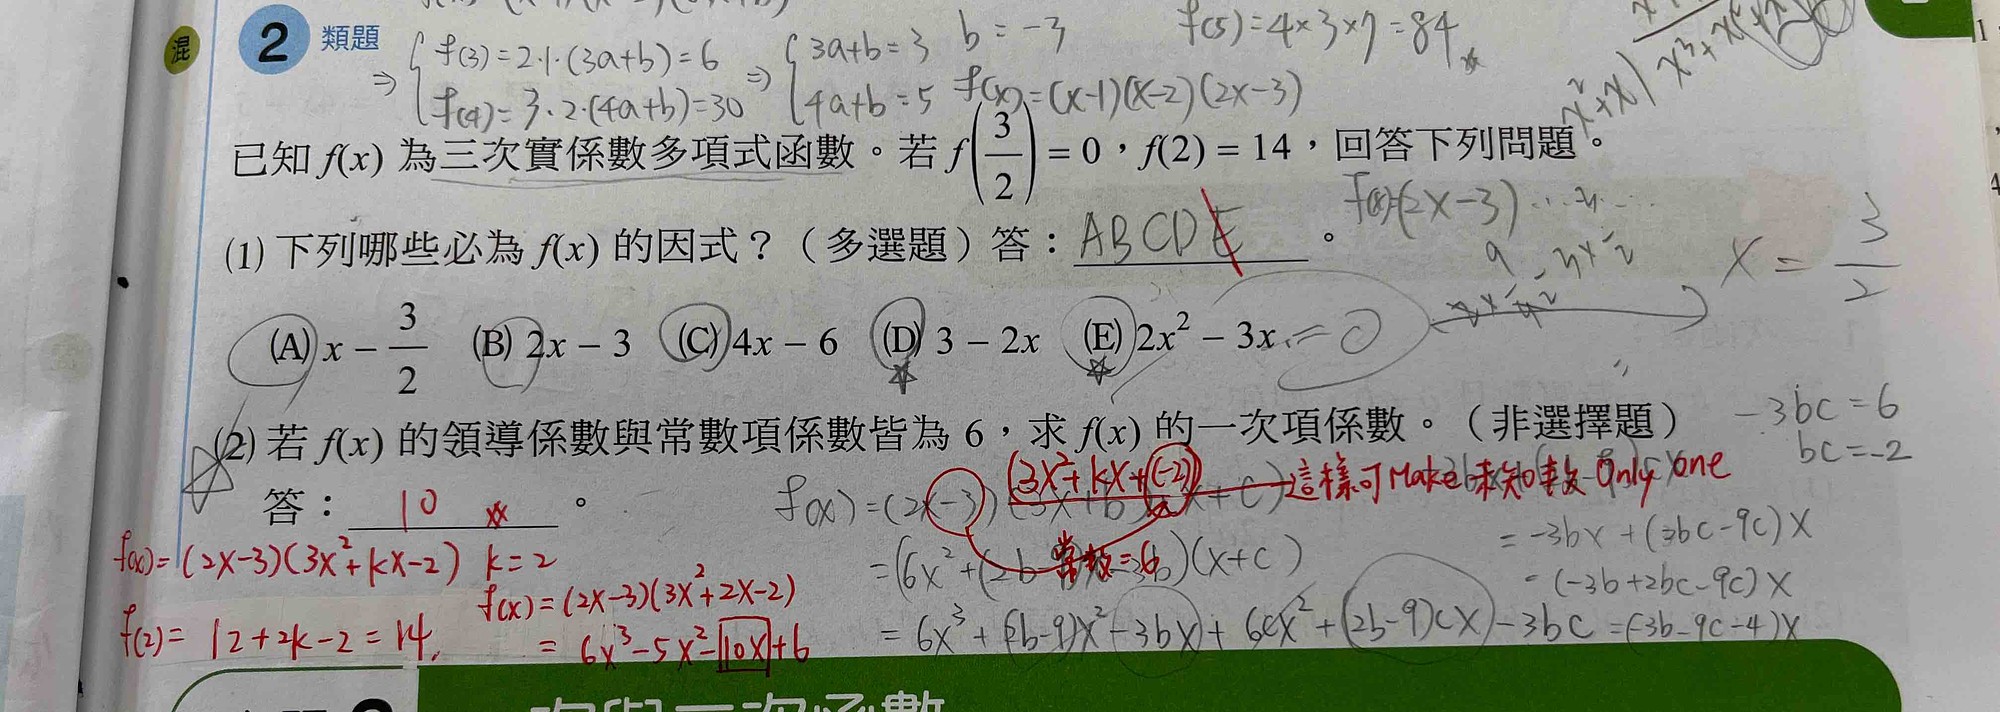 混 2 類題
⇒ { f(3)=2·1·(3a+b)=6 ⇒ { 3a+b=3 b=-3 f(5)=4×3×7=84
f(4)=3·2·(4a+b)=30 4a+b=5 f(x)=(x-1)(x-2)(2x-3)
已知 f(x) 為三次實係數多項式函數。若 f(3/2) = 0，f(2) = 14，回答下列問題。
f(x)=(2x-3)
(1) 下列哪些必為 f(x) 的因式？（多選題）答：ABCDE。
x = 3/2
(A) x - 3/2 (B) 2x - 3 (C) 4x - 6 (D) 3 - 2x (E) 2x² - 3x =0
-3bc=6
bc=-2
(2) 若 f(x) 的領導係數與常數項係數皆為 6，求 f(x) 的一次項係數。（非選擇題）
答：10。
(3x²+kx+(-2)) 這樣可Make未知數 Only one
f(x)=(2x-3)(3x+b)(x+c)
=(6x²+(2b-9)x-3b)(x+c)
常數=6
=6x³+(2b-9)x²-3bx+6cx²+(2b-9)cx-3bc
=-3bx+(2bc-9c)x
=(-3b+2bc-9c)x
=(-3b-9c-4)x
f(x)=(2x-3)(3x²+kx-2) k=2
f(2)=12+2k-2=14,
f(x)=(2x-3)(3x²+2x-2)
=6x³-5x²-10x+6